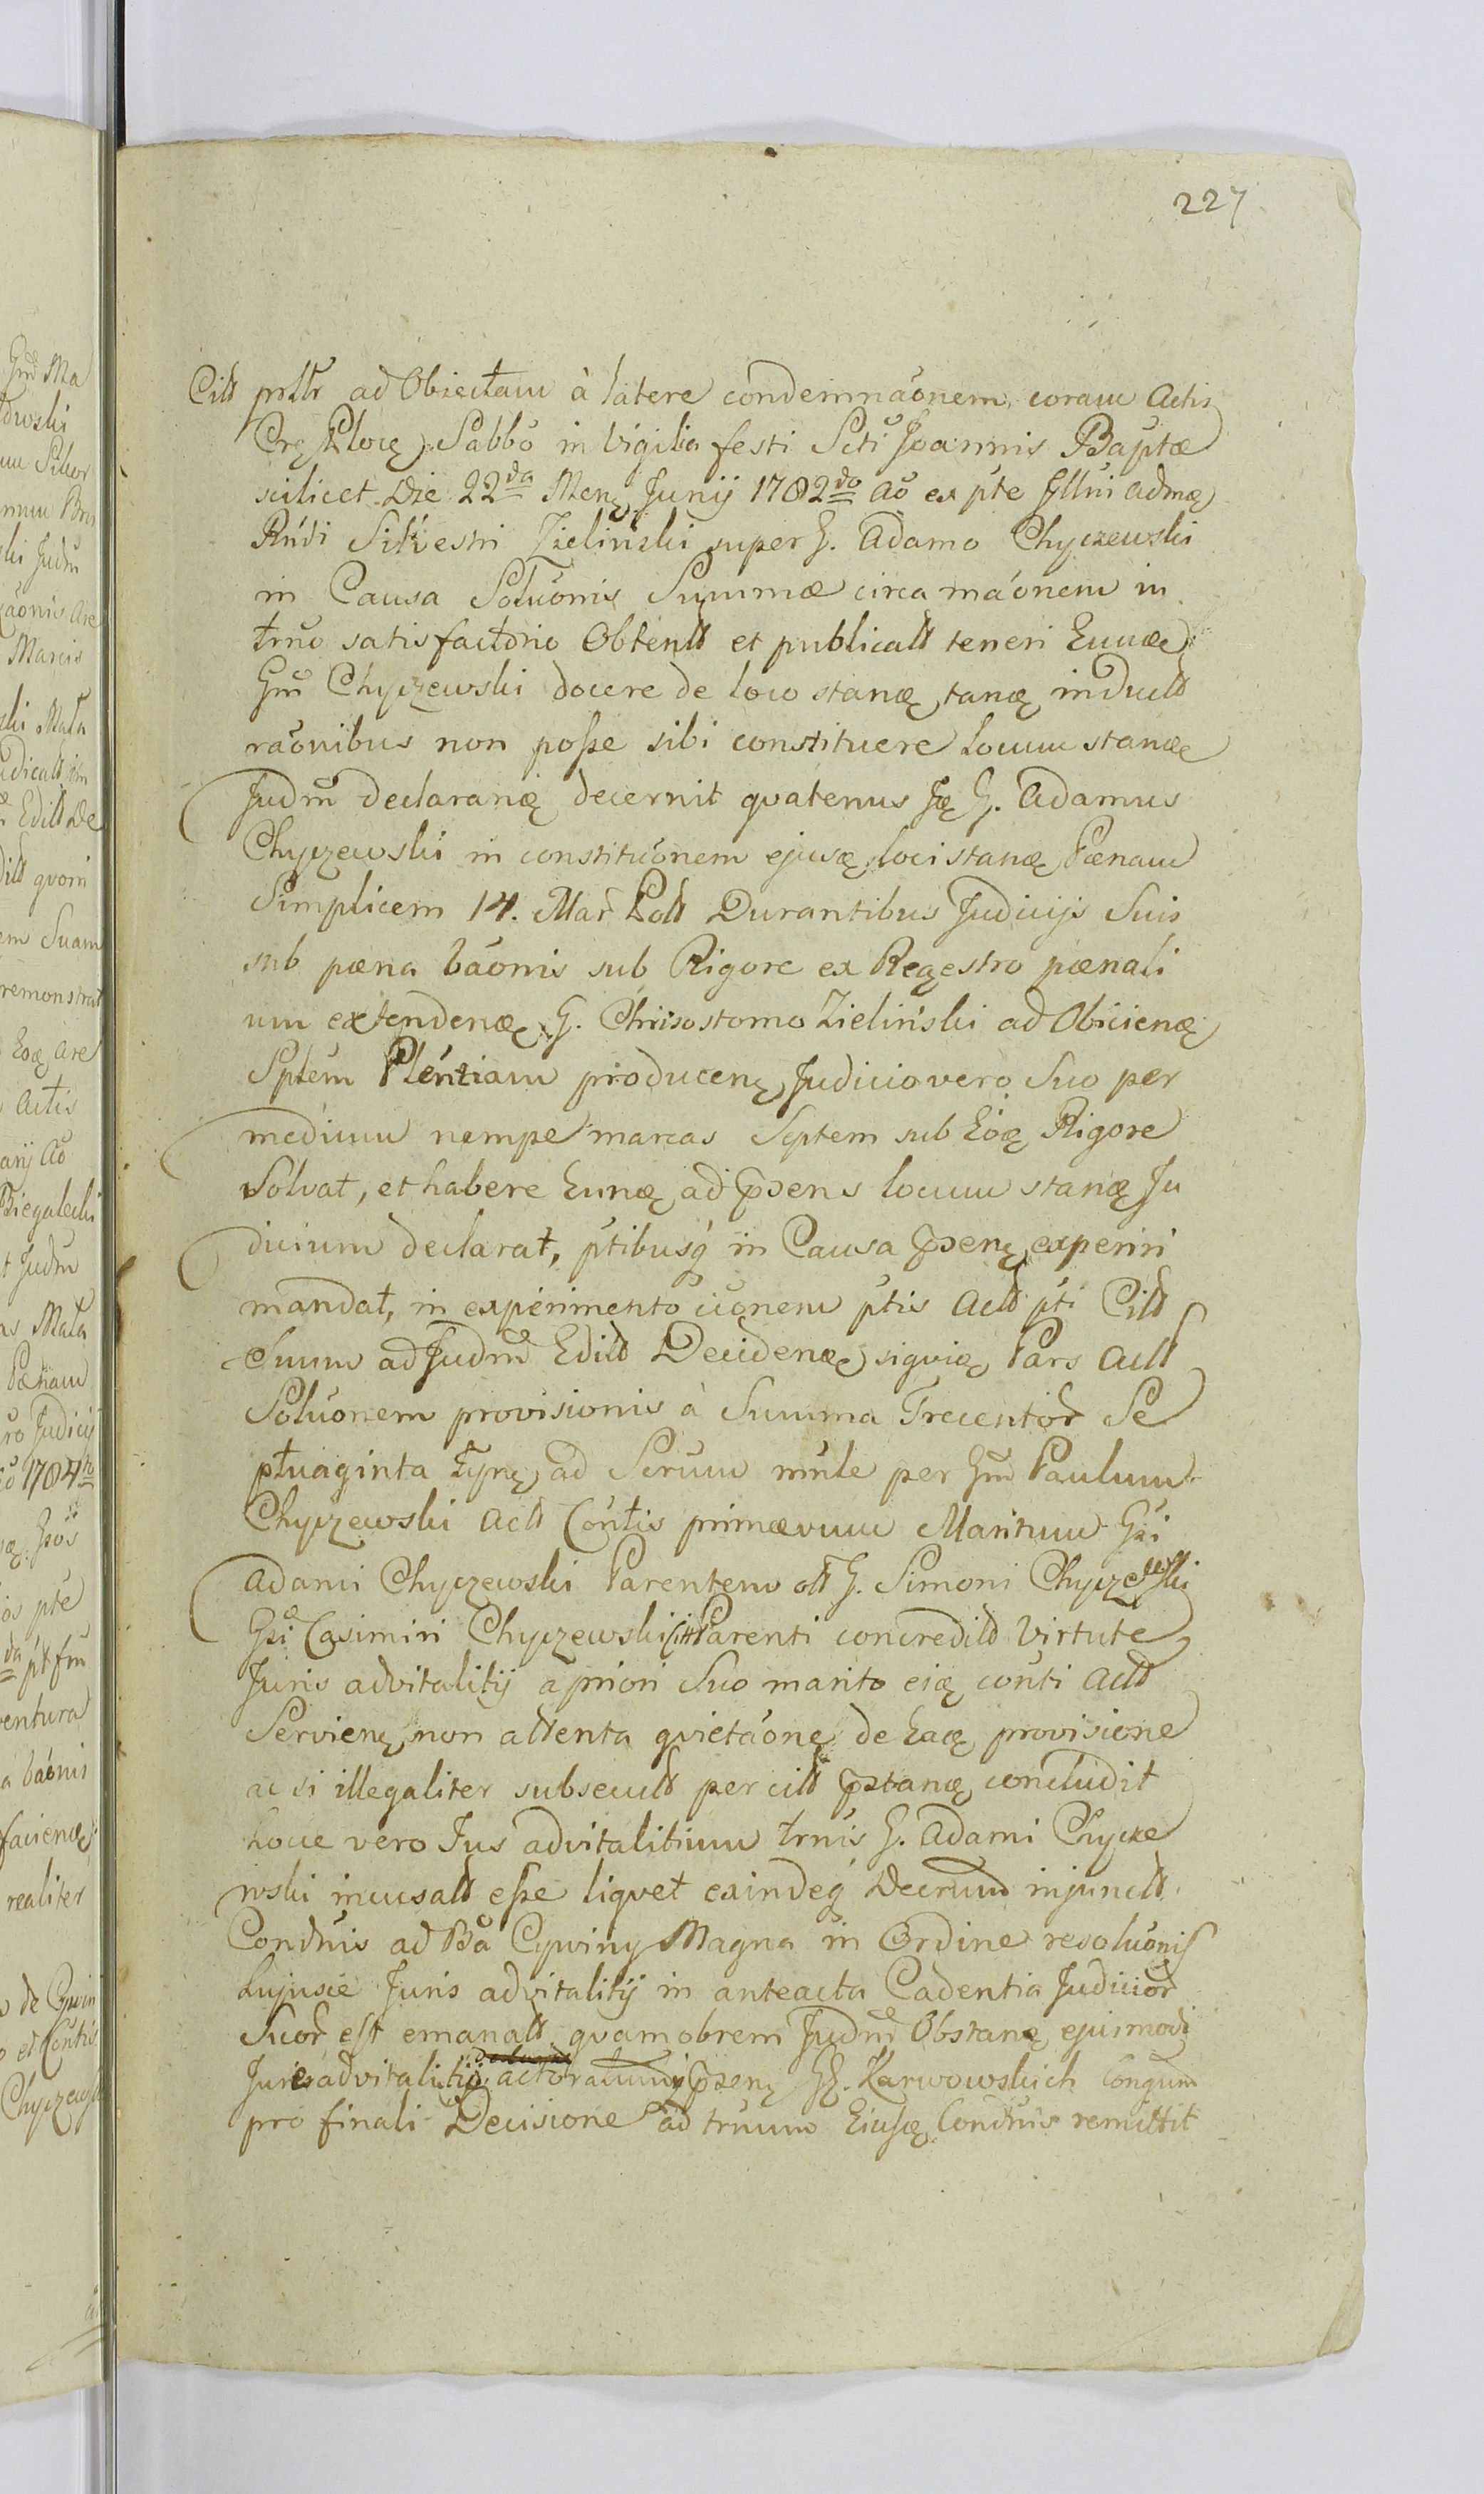 227
Citt prttr ad Obiectam à latere condemnaónem, coram Actis
Crę Plocę Sabbo in Vigilia festi Scti Joannis Baptæ
scilicet Die 22da Menę Junij 1782do Ao ex pte Jllni Admę
Rndi Silvestri Zieliński super G. Adamo Chyczewski
in Causa Solúonis Summæ circa máonem in
trno satisfactorio Obtentt et publicatt teneri Eunæ
Gm Chyczewski docere de loco stanę, tanę inductt
raónibus non posse sibi constituere Locum stanæ
Judm declaranę decernit qvatenus Ję G. Adamus
Chyczewski in constituónem ejusę loci stanę Pænam
Simplicem 14. Mar Poltt Durantibus Judicijs Suis
sub pæna báonis sub Rigore ex Regestro pænali
um extendenæ G. Chrisostomo Zieliński ad Obiicienę
Sptem Pléntiam producenę Judicio vero Suo per
medium nempe marcas Septem sub Eoę Rigore
Solvat, et habere Eunę ad psens locum stanę Ju
dicium declarat, ptibusq in Causa psenę experiri
mandat, in experimento cúonem ptis Actt pti Citt
Suum ad Judm Editt Decidenæ siqvię Pars Actt
Solúonem provisionis à Summa Trecentor Se
ptuaginta Tynę ad Serúm múle per Gm Paulum
Chyczewski Actt Cóntis primævum Maritum Gsi
Adami Chyczewski Parentem ott G. Simoni Chyczewski
Gsi Casimiri Chyczewski Citt Parenti concreditt Virtute
Juris advitalitij a priori Suo marito eię conti Actt
Servienę non attenta qvietáone de Eaę provisione
ac si illegaliter subsecutt per citt pstanę concludit
hocce vero Jus advitalitium trnis G. Adami Chycze
wski incusatt esse liqvet exindeq Decretum injunctt
Condnis ad Ba Cywiny Magna in Ordine resolúonis
hujusce Juris advitalitij in anteacta Cadentia Judicior
Suor est emanatt qvamobrem Judm Obstanę ejusmodi
Juris advitalitij actoratumq psenę GG. Karwowskich Congúm
pro finali Decisione ad trnum Eiusę Condnis remittit